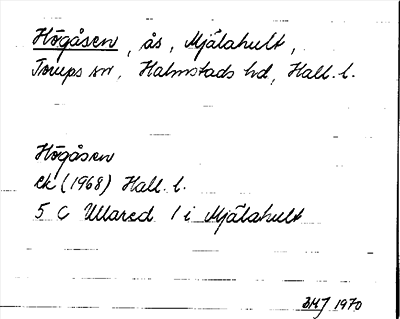 Högåsen, ås, Mjälahult,
Torups sn, Halmstads hd, Hall. l.
Högåsen
ek (1968) Hall. l.
5 C Ullared 1 i Mjälahult
1970